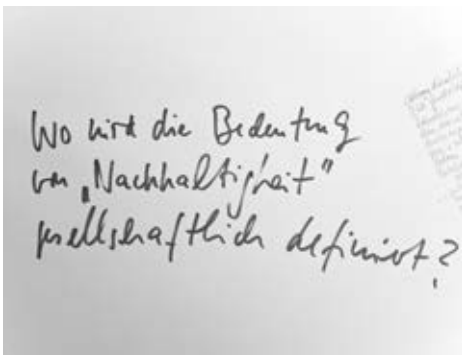 Wo wird die Bedeutung
von „Nachhaltigkeit“
gesellschaftlich definiert?